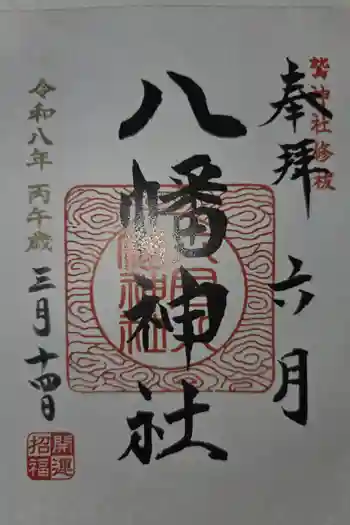 鷲神社修祓
奉拝 六月
八幡神社
令和八年 丙午歳 三月十四日
開運
招福